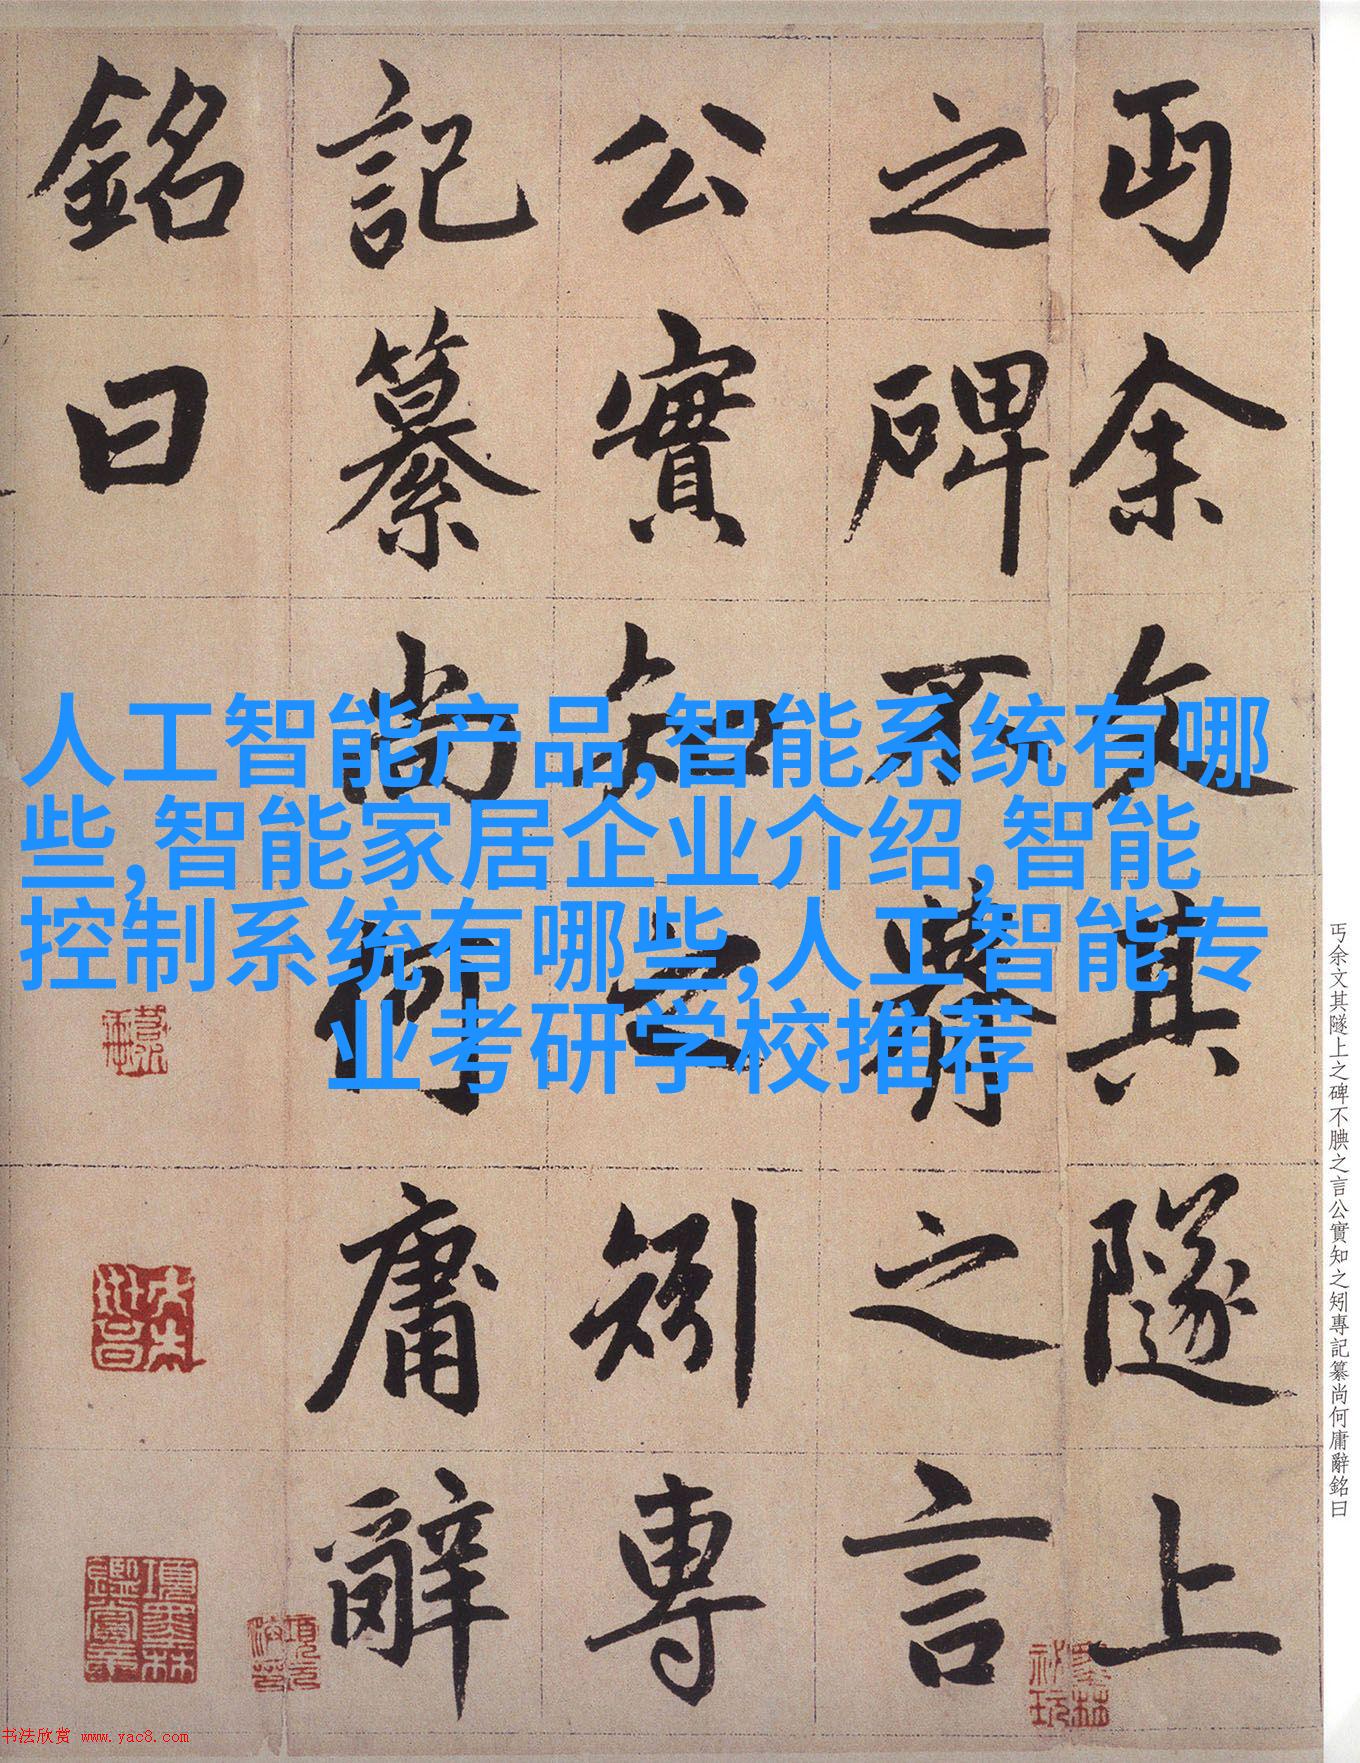 丐余文其隧上
之碑不腆之言
公實知之矧專
記纂尚何庸辭
銘曰
人工智能产品,智能系统有哪
些,智能家居企业介绍,智能
控制系统有哪些,人工智能专
业考研学校推荐
丐余文其隧上之碑不腆之言公實知之矧專記纂尚何庸辭銘曰
項墨林鑑賞章
书法欣赏 www.yac8.com